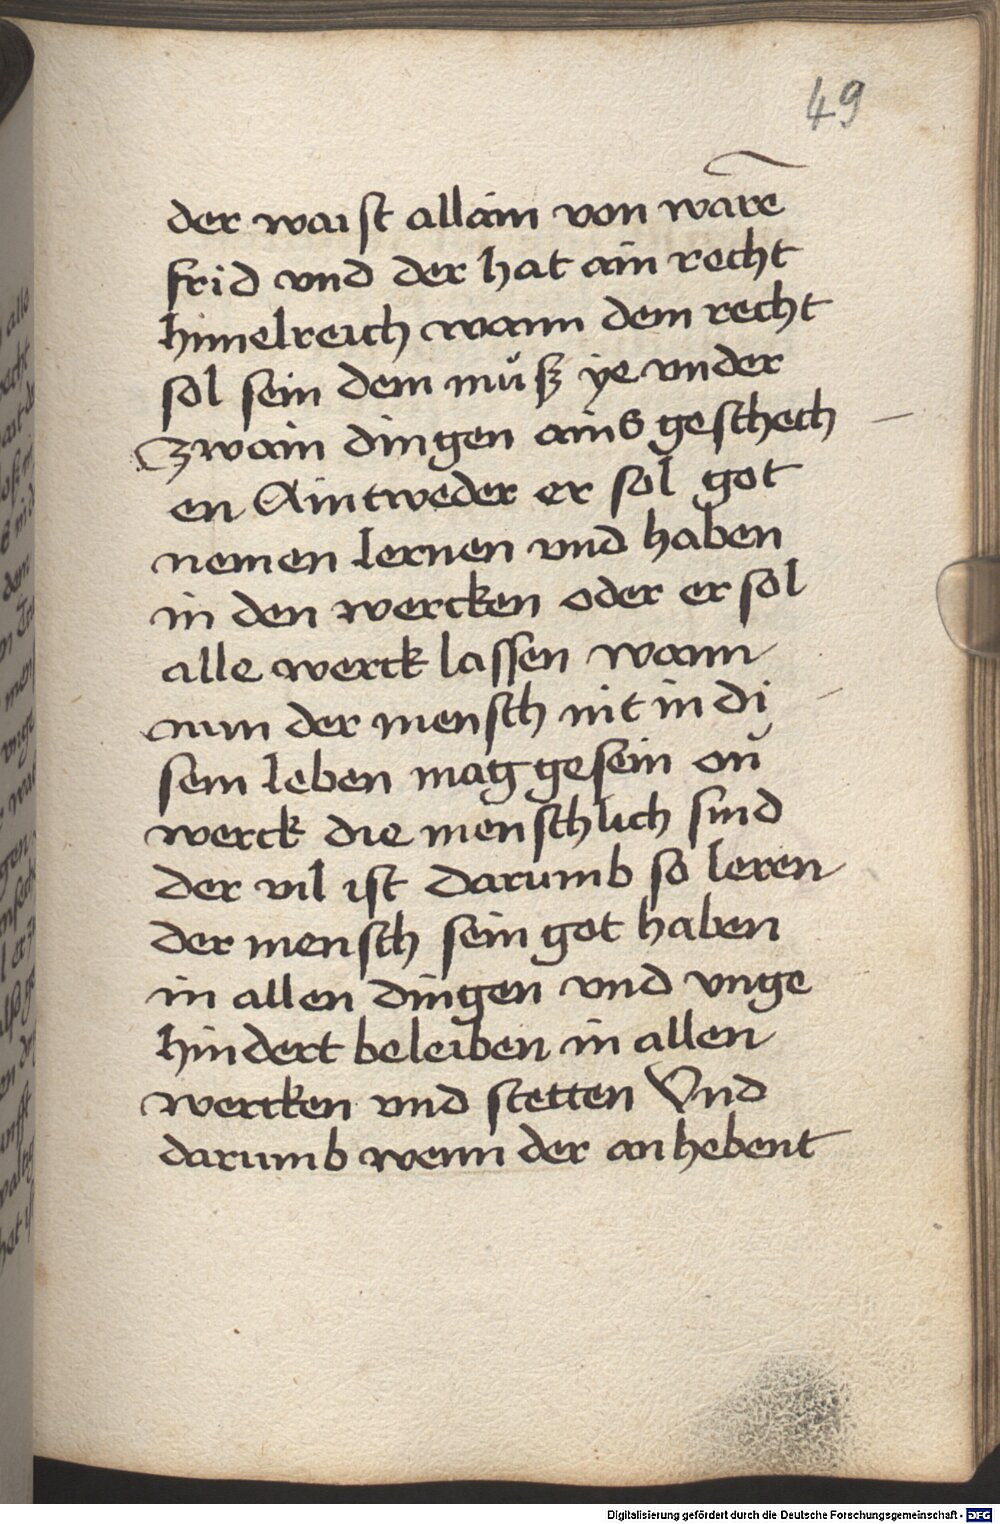 49
der waist allain von warē
frid vnd der hat ain recht
himelreich wann dem recht
sol sein dem muͦß ye vnder
zwain dingen ains geschech
en Aintweder er sol got
nemen lernen vnd haben
in den wercken oder er sol
alle werck lassen wann
nun der mensch nit in di
sem leben mag gesein on
werck die menschlich sind
der vil ist darumb so leren
der mensch sein got haben
in allen dingen vnd vnge
hindert beleiben in allen
wercken vnd stetten Vnd
darumb wenn der anhebent
Digitalisierung gefördert durch die Deutsche Forschungsgemeinschaft - DFG